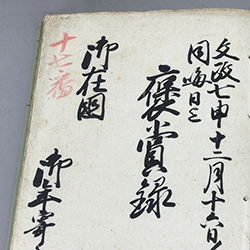 文政七申十二月十六日ゟ
同晦日迄
褒賞録
御在国
十七番
御年寄